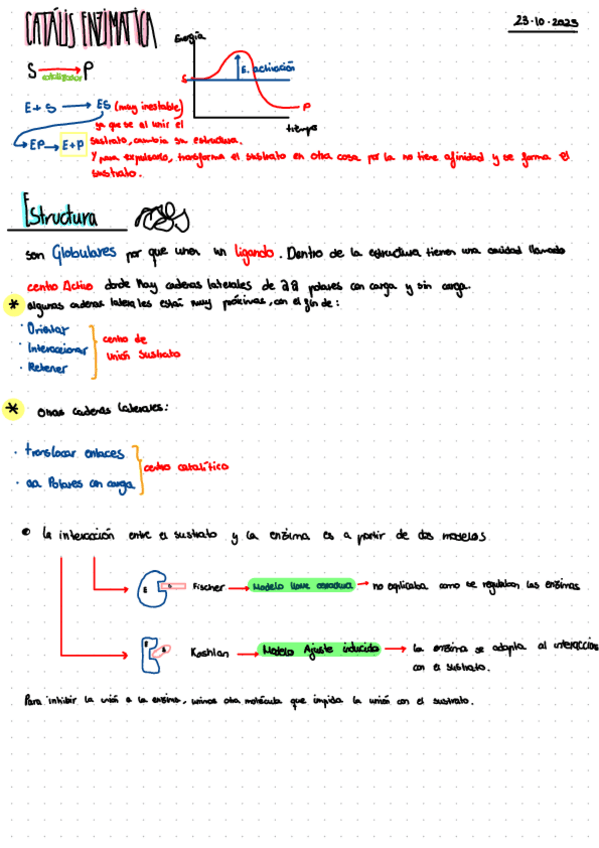 CATÁLIS ENZIMATICA
23-10-2023
Energía
S → P
catalizador
S
E. activación
P
tiempo
E + S → ES (muy inestable)
ya que se al unir el
sustrato, cambia su estructura.
EP → E+P
Y para expulsarlo, transforma el sustrato en otra cosa por la no tiene afinidad y se forma el
sustrato.
Estructura
son Globulares por que unen un ligando. Dentro de la estructura tienen una cavidad llamada
centro Activo donde hay cadenas laterales de aa polares con carga y sin carga.
* algunas cadenas laterales están muy próximas, con el fin de:
· Orientar
· Interaccionar
· Retener
centro de
Unión Sustrato
* Otras cadenas laterales:
· translocar enlaces
· aa Polares con carga
centro catalítico
• la interacción entre el sustrato y la enzima es a partir de dos modelos
E S Fischer → Modelo llave cerradura → no explicaba como se regulaban las enzimas
E Koshlan → Modelo Ajuste inducido → la enzima se adapta al interacción
con el sustrato.
Para inhibir la unión a la enzima, unimos otra molécula que impida la unión con el sustrato.